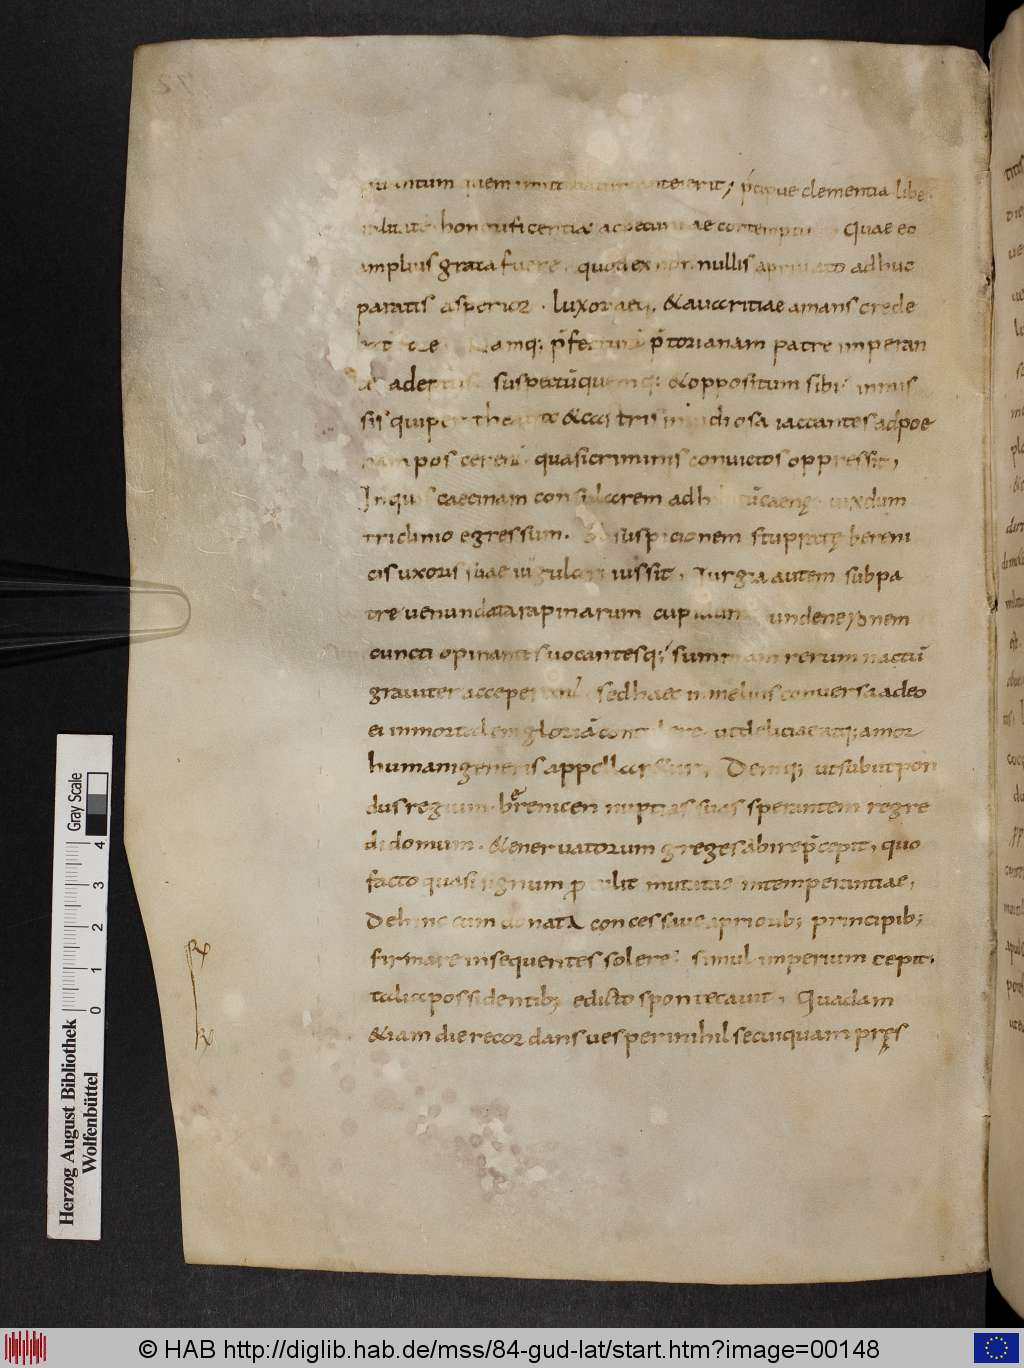 quem imitabatur anteierit; p̄cipue clementia libe
ralitate honorificentia ac pecuniae contemptu Quae eo
amplius grata fuere. quod ex non nullis a privato adhuc
paratis asperior. luxoriaeq;. & avaritiae amans crede
Namq; p̄fecturā p̄torianam patre imperan
adeptus. suspectūquemq; & oppositum sibi inmis
sis qui per theatra & castris invidiosa iactantes ad poe
nam poscerent quasi criminis convictos oppressit,
In quis caecinam consularem adhibitū caenę vixdum
triclinio egressum. Ob suspicionem stupratę bereni
cis uxoris suae iugulari iussit. Iurgia autem sub pa
tre venundata rapinarum cupidum undeneronem
cuncti opinantes vocantesq; summam rerum nactū
graviter acceperant. sed haec in melius conversa adeo
ei inmortalem gloriā contulere. ut deliciae atq; amor
humani generis appellaretur. Deniq; ut subiit pon
dus regium. berenicen nuptias suas sperantem regre
di domum. & enervatorum greges abire p̄cepit. quo
facto quasi signum protulit mutatae intemperantiae,
Dehinc cum donata concessave a priorib; principib;
firmare insequentes solere. simul imperium cepit.
talia possidentib; edicto sponte cavit. Quadam
&iam die recordans vesperi nihil se cuiquam pręs
Herzog August Bibliothek
Wolfenbüttel
0 1 2 3 4
Gray Scale
© HAB http://diglib.hab.de/mss/84-gud-lat/start.htm?image=00148